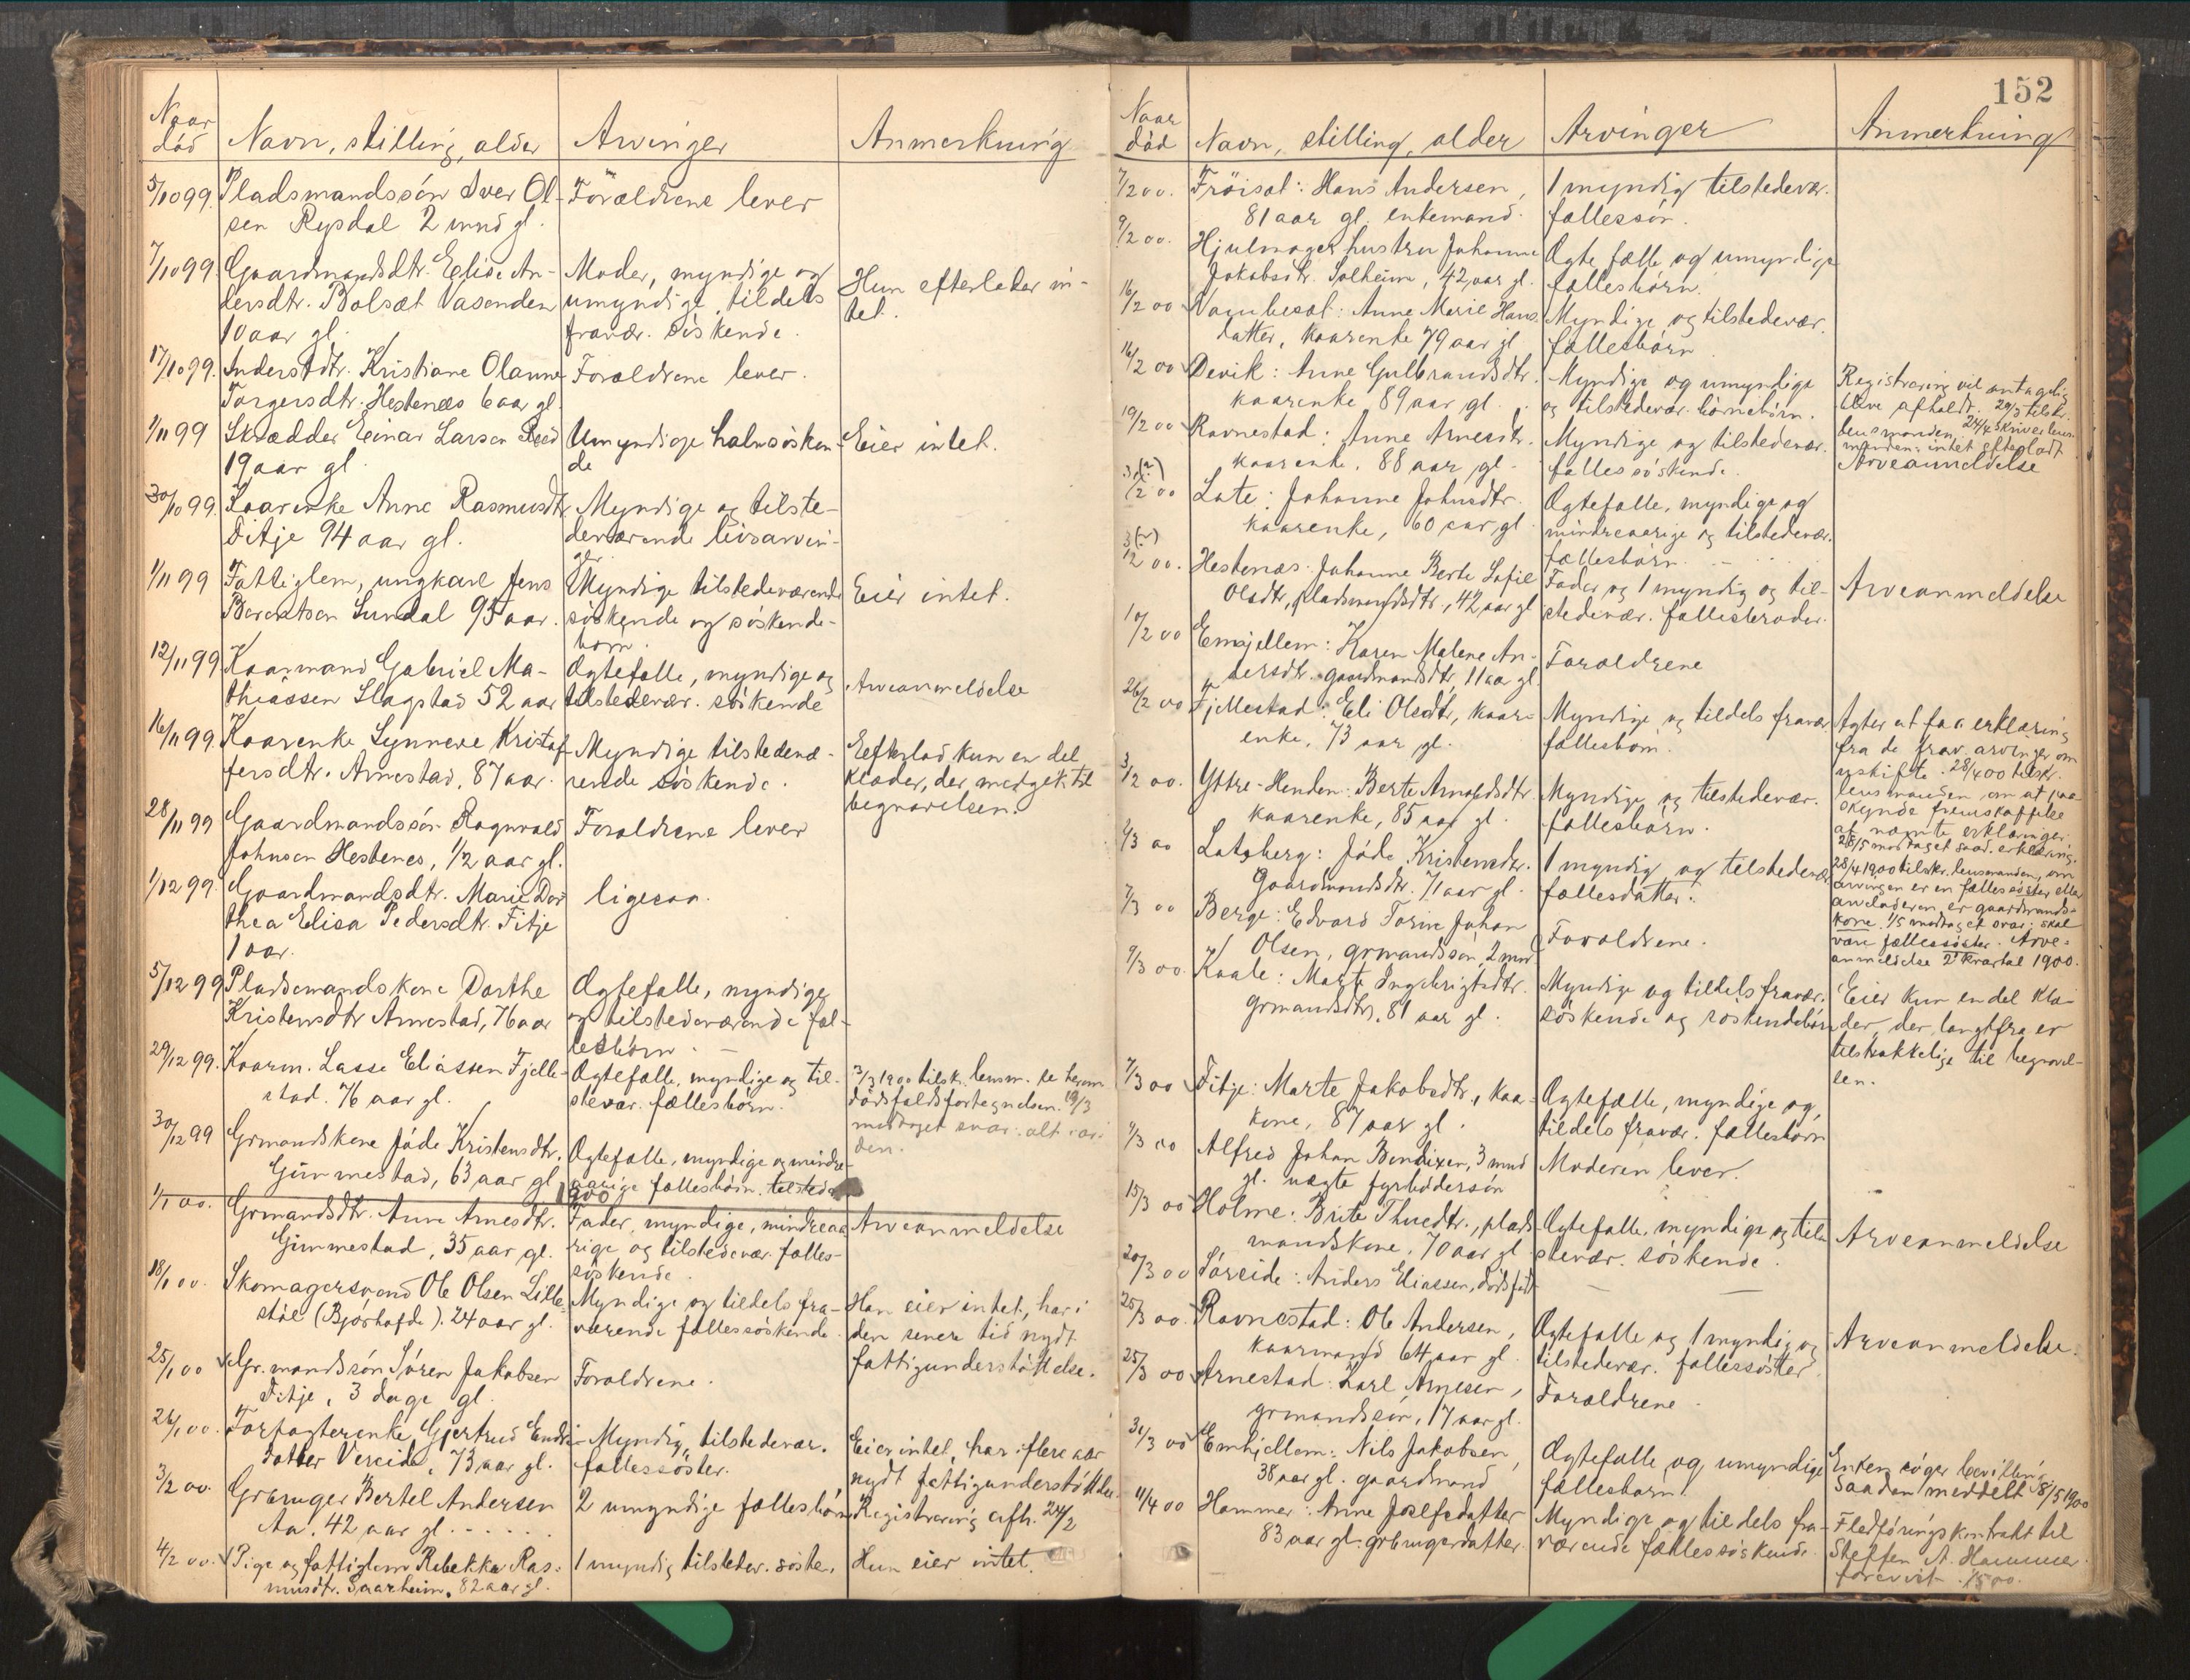 Naar
död
Navn, stilling, alder
Arvinger
Anmerkning
5/10 99. Pladsmandssön Iver Ol-
sen Rysdal 2 mnd gl.
Forældrene lever
7/10 99. Gaardmandsdtr. Elise An-
dersdtr. Bolsæt Vasenden
10 aar gl.
Moder, myndige og
umyndige, tildels
fravær. söskende.
Hun efterlader in-
tet.
17/10 99. Kristiane Olaune
Torgersdtr. Hestenes 6 aar gl.
Forældrene lever.
1/11 99 Skrædder Einar Larsen Reed
19 aar gl.
Umyndige halvsösken-
de
Eier intet.
30/10 99. Kaarenke Anne Rasmusdtr
Fitje 94 aar gl.
Myndige og tilste-
deværende livsarvin-
ger.
1/11 99 Fattiglem, ungkarl Jens
Berentsen Sundal 95 aar.
Myndige tilstedeværende
söskende og söskende-
börn.
Eier intet.
12/11 99 Kaarmand Gabriel Ma-
thiassen Slagstad 52 aar
Ægtefælle, myndige og
tilstedevær. söskende
Arveanmeldelse
16/11 99. Kaarenke Synneve Kristof-
fersdtr. Arnestad, 87 aar.
Myndige tilstedevæ-
rende söskende.
Efterlod kun en del
klæder, der medgik til
begravelsen.
28/11 99 Gaardmandssön Ragnvald
Johnsen Hestenes, 1/2 aar gl.
Forældrene lever
1/12 99. Gaardmandsdtr. Marie Dor
thea Elisa Pedersdtr. Fitje
1 aar.
ligesaa.
5/12 99 Pladsmandskone Dorthe
Kristensdtr Arnestad, 76 aar
Ægtefælle, myndige
og tilstedeværende fæl-
lesbörn. —
29/12 99. Kaarm. Lasse Eliassen Fjelle-
stad. 76 aar gl.
Ægtefælle, myndige og til-
stevær. fællesbörn.
3/3 1900 tilsk. lensm. se
dödsfaldsfortegnelsen. 19/3
modtaget svar: alt i or-
den.
30/12 99 Grmandskone Jöde Kristensdtr.
Gimmestad, 63 aar gl.
Ægtefælle, myndige og mindre-
aarige fællesbörn. tilstede
1900
1/1 00. Grmandsdtr. Anne Arnesdtr.
Gimmestad, 35 aar gl.
Fader, myndige, mindreaa
rige og tilstedevær. fælles-
söskende.
Arveanmeldelse
18/1 00. Skomagersvend Ole Olsen Lille-
stöl (Björhofde). 24 aar gl.
Myndige og tildels fra-
værende fællessöskende.
Han eier intet, har i
den senere tid nydt
fattigunderstöttelse.
25/1 00 Gr.mandssön Sören Jakobsen
Fitje, 3 dage gl.
Forældrene.
26/1 00. Forpagterenke Gjertrud Endre-
datter Vereide, 73 aar gl.
Myndig, tilstedevær.
fællessöster.
Eier intet, har i flere aar
nydt fattigunderstöttelse.
3/2 00. Grbruger Bertel Andersen
Aa. 42 aar gl.
2 umyndige fællesbörn
Registrering afh. 24/2
4/2 00. Pige og fattiglem Rebekka Ras-
musdtr. Saarheim. 82 aar gl.
1 myndig tilstedev. söster.
Hun eier intet.
152
Naar
död
Navn, stilling, alder
Arvinger
Anmerkning
7/2 00. Fröisæt: Hans Andersen,
81 aar gl. enkemand.
1 myndig tilstedevær.
fællessön.
9/2 00. Hjulmagerhustru Johanne
Jakobsdtr. Solheim, 42 aar gl.
Ægtefælle og umyndige
fællesbörn.
16/2 00 Vambesæt: Anne Marie Hans-
datter, kaarenke 79 aar gl
Myndige og tilstedevær.
fællesbörn
16/2 00 Devik: Anne Gulbrandsdtr.
kaarenke 89 aar gl.
Myndige og umyndige
og tilstedevær. börnebörn.
Registrering vil antagelig
blive afholdt. 29/3 tilskr.
lensmanden, 24/4 skriver lens-
manden: intet efterladt
19/2 00 Ravnestad: Anne Arnesdtr.
kaarenke, 88 aar gl.
Myndige og tilstedevær.
fællessöskende.
Arveanmeldelse
3(?)/2 00 Lote: Johanne Johnsdtr.
kaarenke, 60 aar gl
Ægtefælle, myndige og
mindreaarige og tilstedevær.
fællesbörn.
3(?)/2 00. Hestenæs: Johanne Berte Sofie
Olsdtr, pladsmandsdtr, 42 aar gl
Fader og 1 myndig og til-
stedevær. fællesbroder.
Arveanmeldelse
10/2 00 Emhjellem: Karen Malene An-
dersdtr. gaardmandsdtr, 11 aar gl
Forældrene
26/2 00 Fjellestad: Eli Olsdtr, kaar-
enke, 73 aar gl.
Myndige og tildels fravær
fællesbörn.
Agter at faa erklæring
fra de frav. arvinger om
uskifte. 28/4 00 tilskr.
lensmanden om at paa-
skynde fremskaffelse
af nævnte erklæringer.
28/5 modtaget saad. erklæring.
3/2 00. Yttre-Henden: Berte Arnoldsdtr
kaarenke, 85 aar gl.
Myndige og tilstedevær.
fællesbörn.
2/3 00 Lotsberg: Jöde Kristensdtr.
Gaardmandsdtr. 71 aar gl.
1 myndig og tilstedevær
fællesdatter.
28/4 1900 tilskr. lensmanden, om
arvingen er en fællessöster eller
arveladeren er gaardmands-
kone. 1/5 modtaget svar: skal
være fællessöster. Arve-
anmeldelse 2' kvartal 1900.
7/3 00 Berge: Edvard Torine Johan
Olsen, grmandssön, 2 mnd
Forældrene.
9/3 00. Kaale: Marte Ingebrigtsdtr.
grmandsdtr, 81 aar gl.
Myndige og tildels fravær.
söskende og söskendebörn
Eier kun en del klæ-
der, der langtfra er
tilstrækkelige til begravel-
sen.
7/3 00 Fitje: Marte Jakobsdtr., kaar-
kone, 87 aar gl.
Ægtefælle, myndige og
tildels fravær. fællesbörn
9/3 00 Alfred Johan Bendixen, 3 mnd
gl. uægte fyrbödersön
Moderen lever.
15/3 00 Holme: Brite Thuedtr., plads-
mandskone, 70 aar gl
Ægtefælle, myndige og tilste
stevær. söskende.
Arveanmeldelse
20/3 00 Söreide: Anders Eliassen, dödsfaldt
— —
25/3 00. Ravnestad: Ole Andersen,
kaarmand 64 aar gl.
Ægtefælle og 1 myndig og
tilstedevær. fællessöster
Arveanmeldelse.
25/3 00 Arnestad: Karl Arnesen,
grmandssön, 17 aar gl.
Forældrene.
31/3 00 Emhjellem: Nils Jakobsen,
38 aar gl. gaardmand
Ægtefælle og umyndige
fællesbarn.
Enken söger bevilling
Saadan meddelt 18/5 1900
11/4 00 Hammer: Anne Joelfsdatter
83 aar gl. grbrugerdatter.
Myndige og tildels fra-
værende fællessöskende.
Fledföringskontrakt til
Steffen A. Hammer
forevist